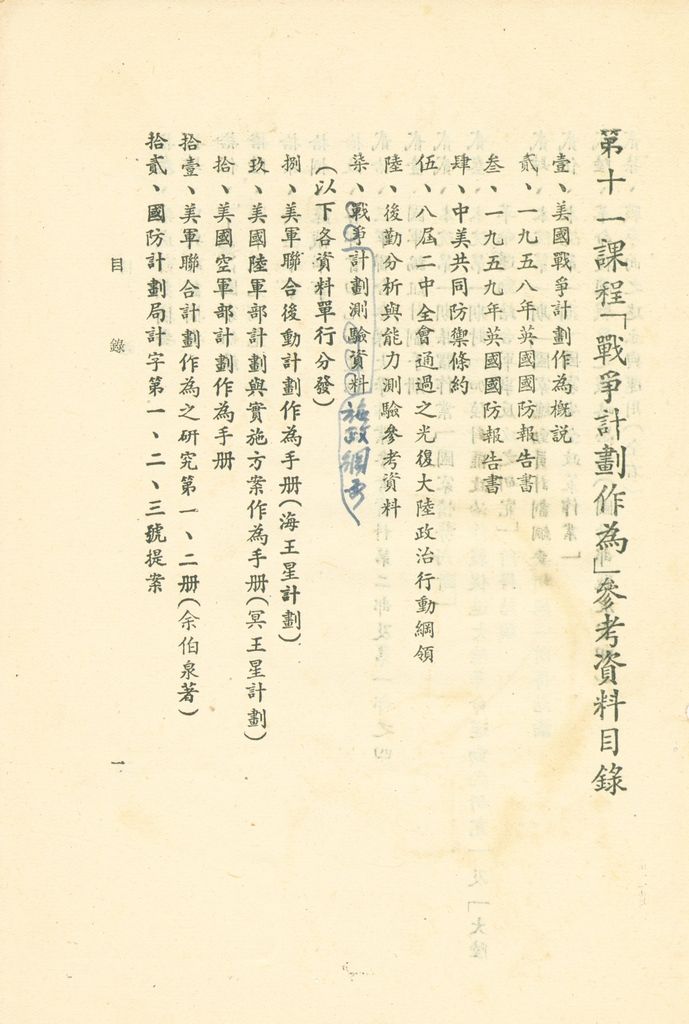 第十一課程「戰爭計劃作為」參考資料目錄
壹、美國戰爭計劃作為概說
貳、一九五八年英國國防報告書
叁、一九五九年英國國防報告書
肆、中美共同防禦條約
伍、八屆二中全會通過之光復大陸政治行動綱領
陸、後勤分析與能力測驗參考資料
柒、戰爭計劃測驗資料施政綱要
(以下各資料單行分發)
捌、美軍聯合後動計劃作為手册(海王星計劃)
玖、美國陸軍部計劃與實施方案作為手册(冥王星計劃)
拾、美國空軍部計劃作為手册
拾壹、美軍聯合計劃作為之研究第一、二册(余伯泉著)
拾貳、國防計劃局計字第一、二、三號提案
目錄
一